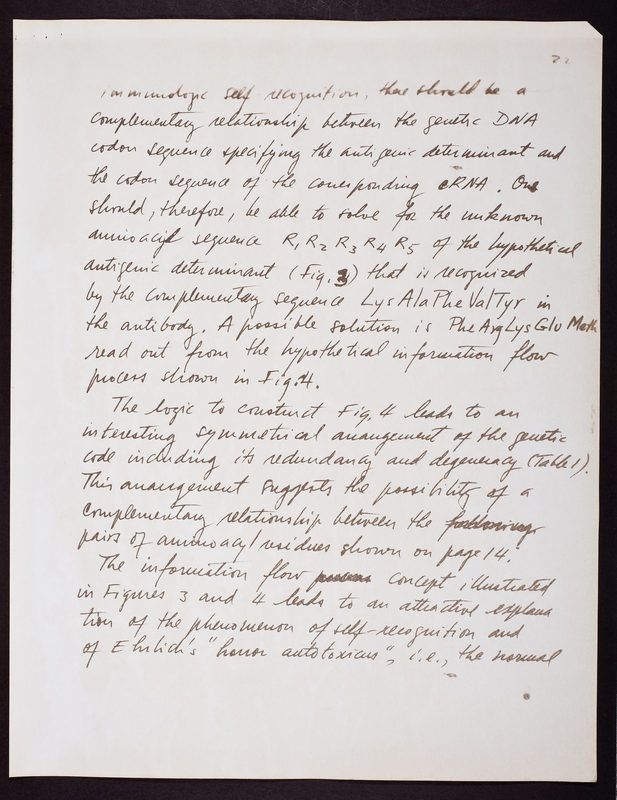 22
immunologic self recognition, there should be a
complementary relationship between the genetic DNA
codon sequence specifying the antigenic determinant and
the codon sequence of the corresponding cRNA. One
should, therefore, be able to solve for the unknown
aminoacyl sequence R1 R2 R3 R4 R5 of the hypothetical
antigenic determinant (Fig. 3) that is recognized
by the complementary sequence LysAlaPheValTyr in
the antibody. A possible solution is PheArgLysGlu Meth
read out from the hypothetical information flow
process shown in Fig. 4.
The logic to construct Fig. 4 leads to an
interesting symmetrical arrangement of the genetic
code including its redundancy and degeneracy (Table 1).
This arrangement suggests the possibility of a
complementary relationship between the following
pairs of aminoacyl residues shown on page 14.
The information flow process concept illustrated
in Figures 3 and 4 leads to an attractive explana
tion of the phenomenon of self-recognition and
of Ehrlich's "horror autotoxicus", i.e., the normal